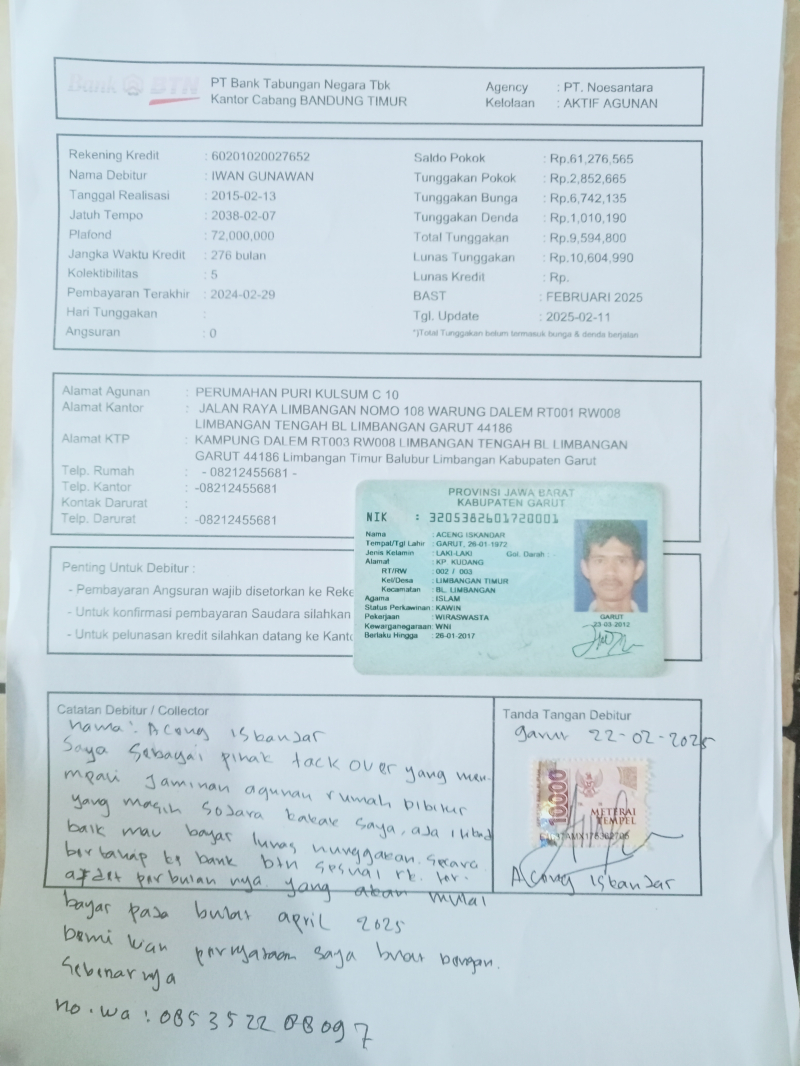 Bank BTN
PT Bank Tabungan Negara Tbk
Kantor Cabang BANDUNG TIMUR
Agency : PT. Noesantara
Kelolaan : AKTIF AGUNAN
Rekening Kredit : 60201020027652
Nama Debitur : IWAN GUNAWAN
Tanggal Realisasi : 2015-02-13
Jatuh Tempo : 2038-02-07
Plafond : 72,000,000
Jangka Waktu Kredit : 276 bulan
Kolektibilitas : 5
Pembayaran Terakhir : 2024-02-29
Hari Tunggakan :
Angsuran : 0
Saldo Pokok : Rp.61,276,565
Tunggakan Pokok : Rp.2,852,665
Tunggakan Bunga : Rp.6,742,135
Tunggakan Denda : Rp.1,010,190
Total Tunggakan : Rp.9,594,800
Lunas Tunggakan : Rp.10,604,990
Lunas Kredit : Rp.
BAST : FEBRUARI 2025
Tgl. Update : 2025-02-11
*)Total Tunggakan belum termasuk bunga & denda berjalan
Alamat Agunan : PERUMAHAN PURI KULSUM C 10
Alamat Kantor : JALAN RAYA LIMBANGAN NOMO 108 WARUNG DALEM RT001 RW008
LIMBANGAN TENGAH BL LIMBANGAN GARUT 44186
Alamat KTP : KAMPUNG DALEM RT003 RW008 LIMBANGAN TENGAH BL LIMBANGAN
GARUT 44186 Limbangan Timur Balubur Limbangan Kabupaten Garut
Telp. Rumah : - 08212455681 -
Telp. Kantor : -08212455681
Kontak Darurat :
Telp. Darurat : -08212455681
PROVINSI JAWA BARAT
KABUPATEN GARUT
NIK : 3205382601720001
Nama : ACENG ISKANDAR
Tempat/Tgl Lahir : GARUT, 26-01-1972
Jenis Kelamin : LAKI-LAKI Gol. Darah : -
Alamat : KP. KUDANG
RT/RW : 002 / 003
Kel/Desa : LIMBANGAN TIMUR
Kecamatan : BL. LIMBANGAN
Agama : ISLAM
Status Perkawinan : KAWIN
Pekerjaan : WIRASWASTA
Kewarganegaraan : WNI
Berlaku Hingga : 26-01-2017
GARUT
23-03-2012
Penting Untuk Debitur :
- Pembayaran Angsuran wajib disetorkan ke Reke
- Untuk konfirmasi pembayaran Saudara silahkan
- Untuk pelunasan kredit silahkan datang ke Kanto
Catatan Debitur / Collector
nama : Aceng iskandar
Saya Sebagai pihak tack over yang men
mpati Jaminan agunan rumah
yang masih Sodara kakak saya, ada
baik mau bayar lunas nunggakan. Secara
bertahap ke bank btn Sesuai
perbulan nya. yang akan mulai
bayar pada bulan april 2025
Demi kian pernyataan saya buat dengan.
Sebenarnya
no. wa : 085352288097
Tanda Tangan Debitur
garut 22-02-2025
10000
METERAI
TEMPEL
Aceng iskandar